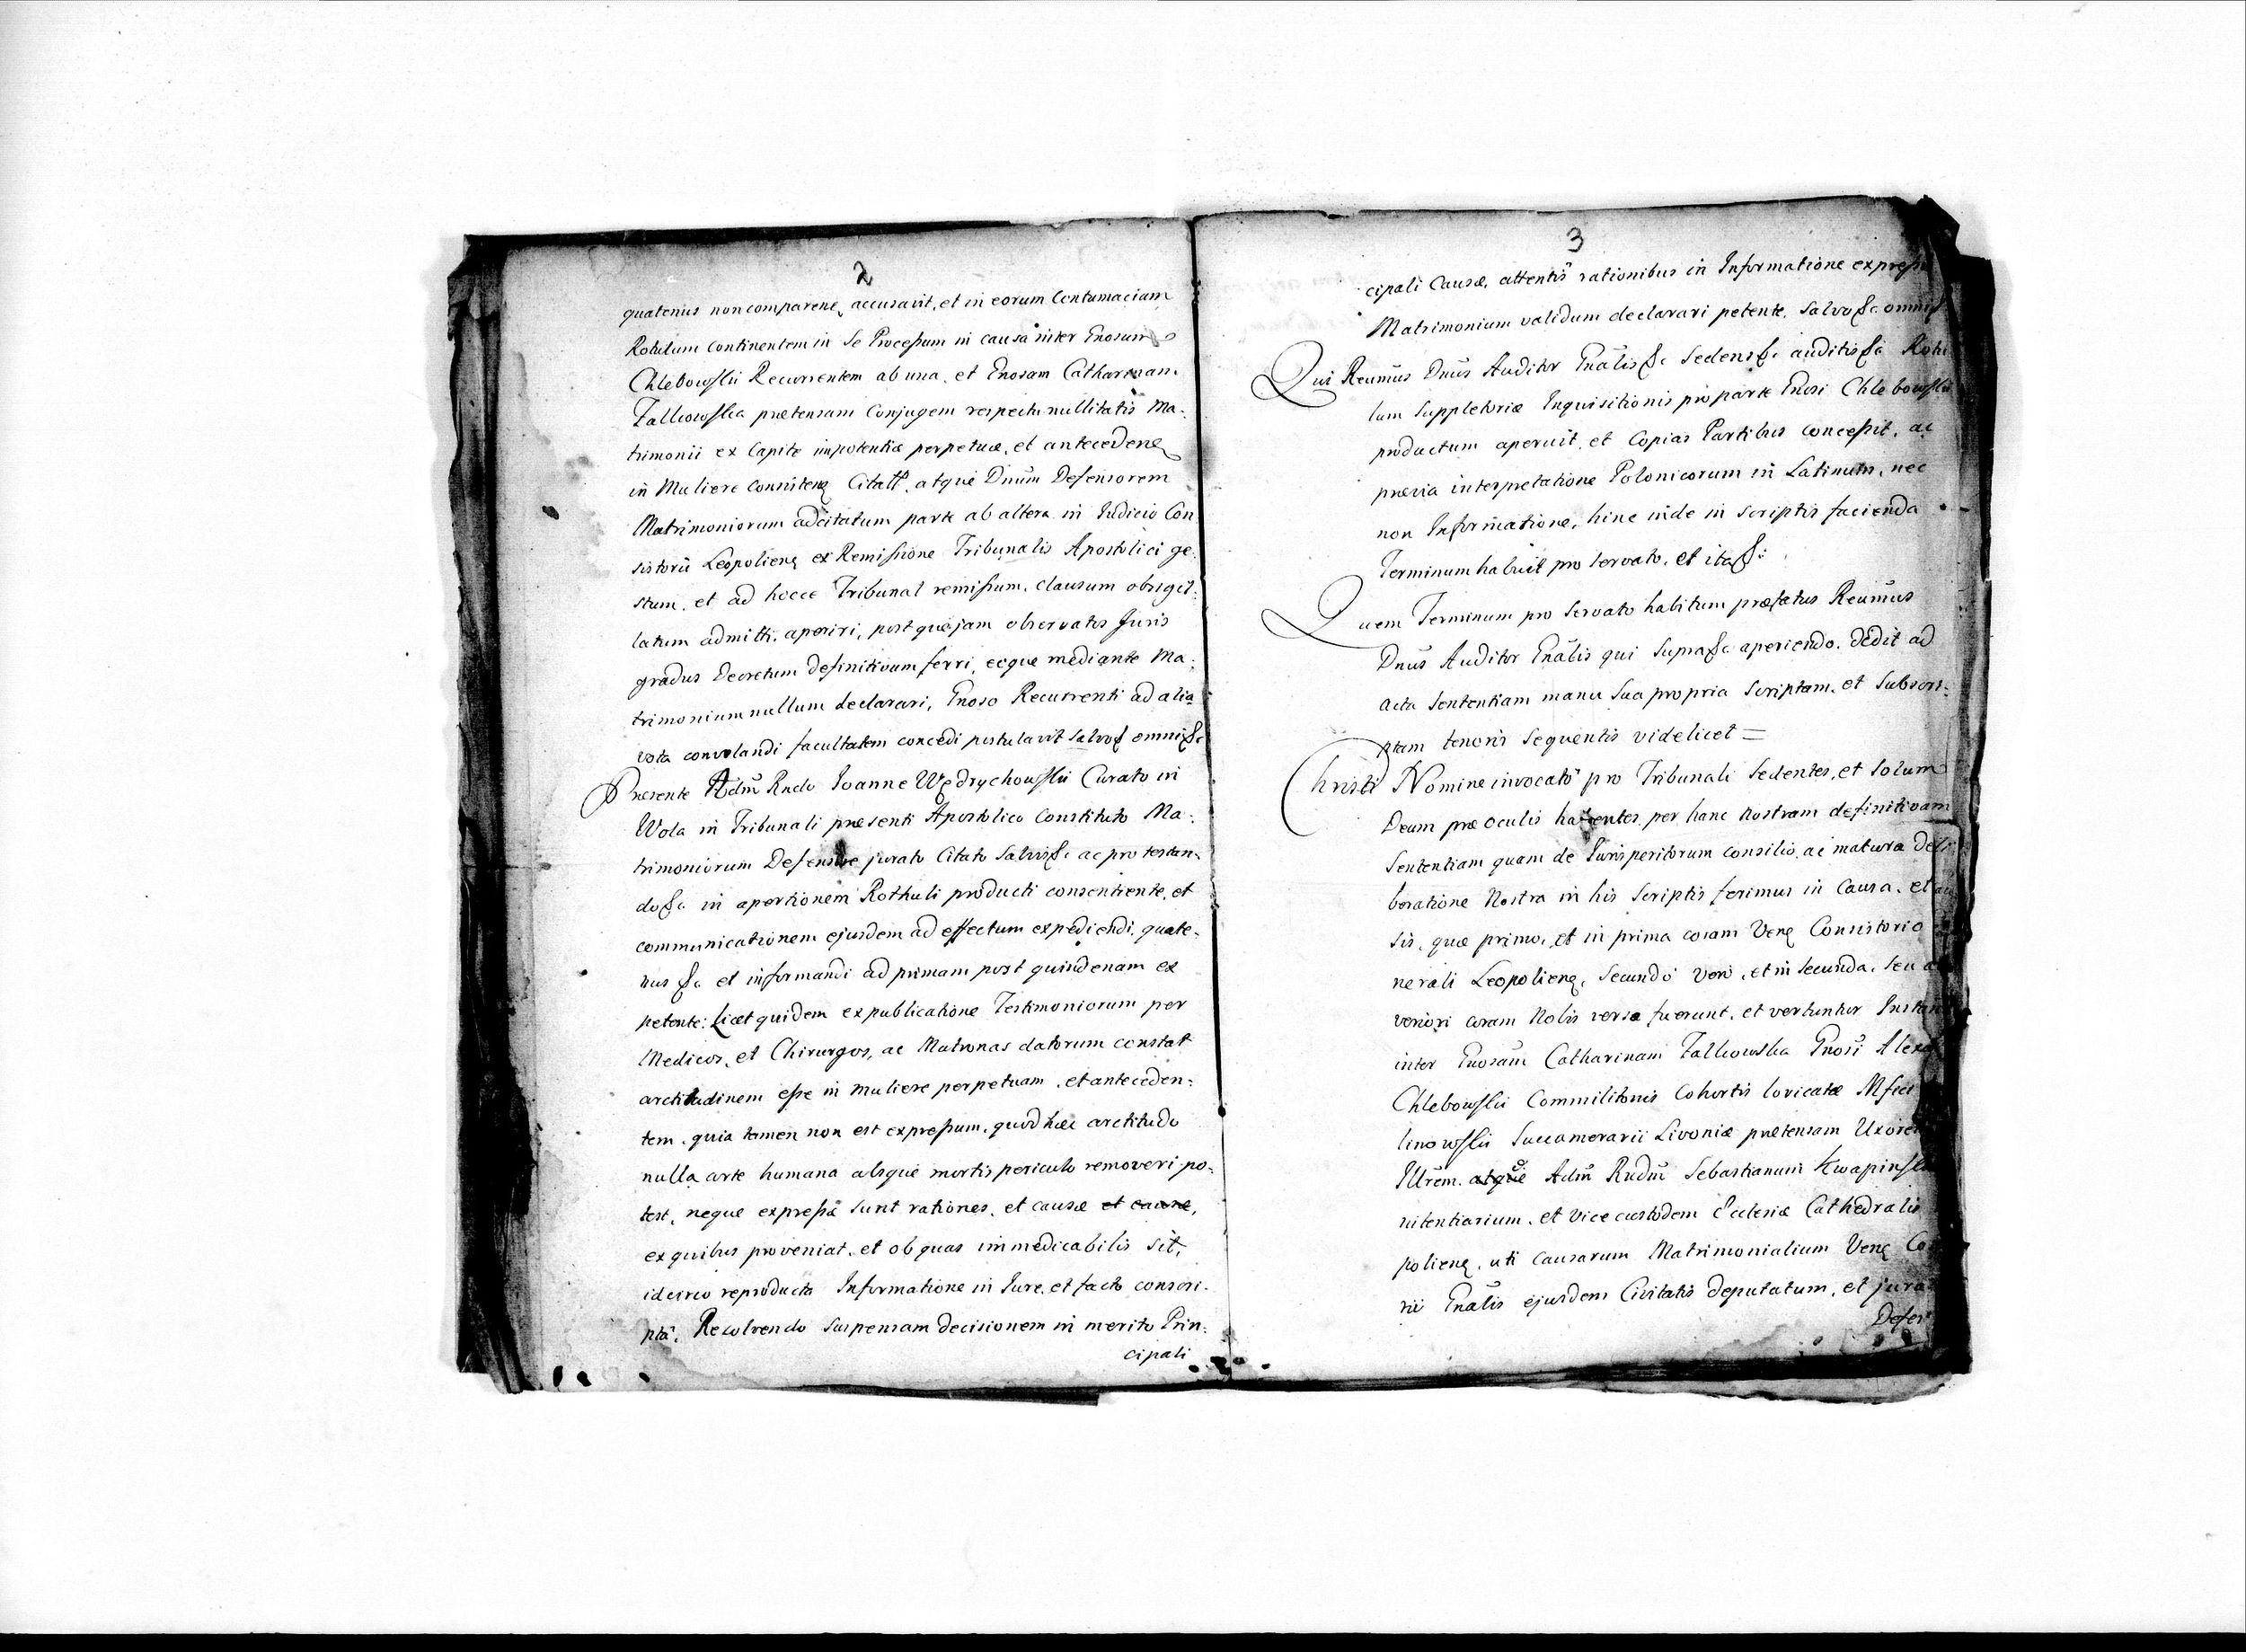 2
quatenus non comparen, accusavit, et in eorum Contumaciam
Rotulum continentem in se Processum in causa inter Gnosum
Chlebowski Recurrentem ab una, et Gnosam Catharinam
Falkowska prætensam Conjugem respectu nullitatis Ma:
trimonii ex Capite impotentiæ perpetuæ, et anteceden
in Muliere consisten Citatt. atque Dnum Defensorem
Matrimoniorum adcitatum parte ab altera in Iudicio Con
sistorii Leopolien ex Remissione Tribunalis Apostolici ge:
stum, et ad hocce Tribunal remissum, clausum obsigil:
latum admitti, aperiri, post que jam observatos Juris
gradus Decretum definitivum ferri, eoque mediante Ma:
trimonium nullum declarari, Gnoso Recurrenti ad alia
vota convolandi facultatem concedi postulavit salvis omnis &c
Præsente Adm Rndo Ioanne Wędrychowski Curato in
Wola in Tribunali præsenti Apostolico Constituto Ma:
trimoniorum Defensore jurato Citato salvis &c ac protestan:
do &c in apertionem Rothuli producti consentiente, et
communicationem ejusdem ad effectum expediendi, quate:
nus &c et informandi ad primam post quindenam ex
petente: Licet quidem ex publicatione Testimoniorum per
Medicos, et Chirurgos, ac Matronas datorum constat
arctitudinem esse in Muliere perpetuam, et anteceden:
tem, quia tamen non est expressum, quod hæc arctitudo
nulla arte humana absque mortis periculo removeri po:
test, neque expressæ sunt rationes, et causæ et causæ,
ex quibus proveniat, et ob quas immedicabilis sit,
idcirco reproducta Informatione in Iure, et facto conscri:
pta, Resolvendo suspensam decisionem in merito Prin:
cipali
3
cipali Causæ, attentis rationibus in Informatione expressis
Matrimonium validum declarari petente, salvis &c omnis
Qui Reumus Dnus Auditor Gnalis &c Sedens &c auditis &c Rotu
lum suppletoriæ Inquisitionis pro parte Gnosi Chlebowski
productum aperuit, et Copias Partibus concessit, ac
prævia interpretatione Polonicorum in Latinum, nec
non Informatione, hinc inde in scriptis facienda
Terminum habuit pro servato, et ita &c
Quem Terminum pro servato habitum præfatus Reumus
Dnus Auditor Gnalis qui supra &c aperiendo, dedit ad
acta sententiam manu sua propria scriptam, et subscri:
ptam tenoris sequentis videlicet =
Christi Nomine invocato pro Tribunali sedentes, et solum
Deum præ oculis habentes per hanc nostram definitivam
Sententiam quam de Iurisperitorum consilio, ac matura deli
beratione Nostra in his scriptis ferimus in Causa, et cau
sis, quæ primo, et in prima coram Ven Consistorio
nerali Leopolien, secundo vero, et in secunda, seu
veriori coram Nobis versæ fuerunt, et vertuntur Instan
inter Gnosam Catharinam Falkowska Gnosi Alexa
Chlebowski Commilitonis Cohortis loricatæ Mfici
linowski Succamerarii Livoniæ prætensam Uxorem
Adm Rndm Sebastianum Kwapinski
nitentiarium, et Vice custodem Ecclesiæ Cathedralis
polien, uti causarum Matrimonialium Ven Con
rii Gnalis ejusdem Civitatis deputatum, et jura
Defen